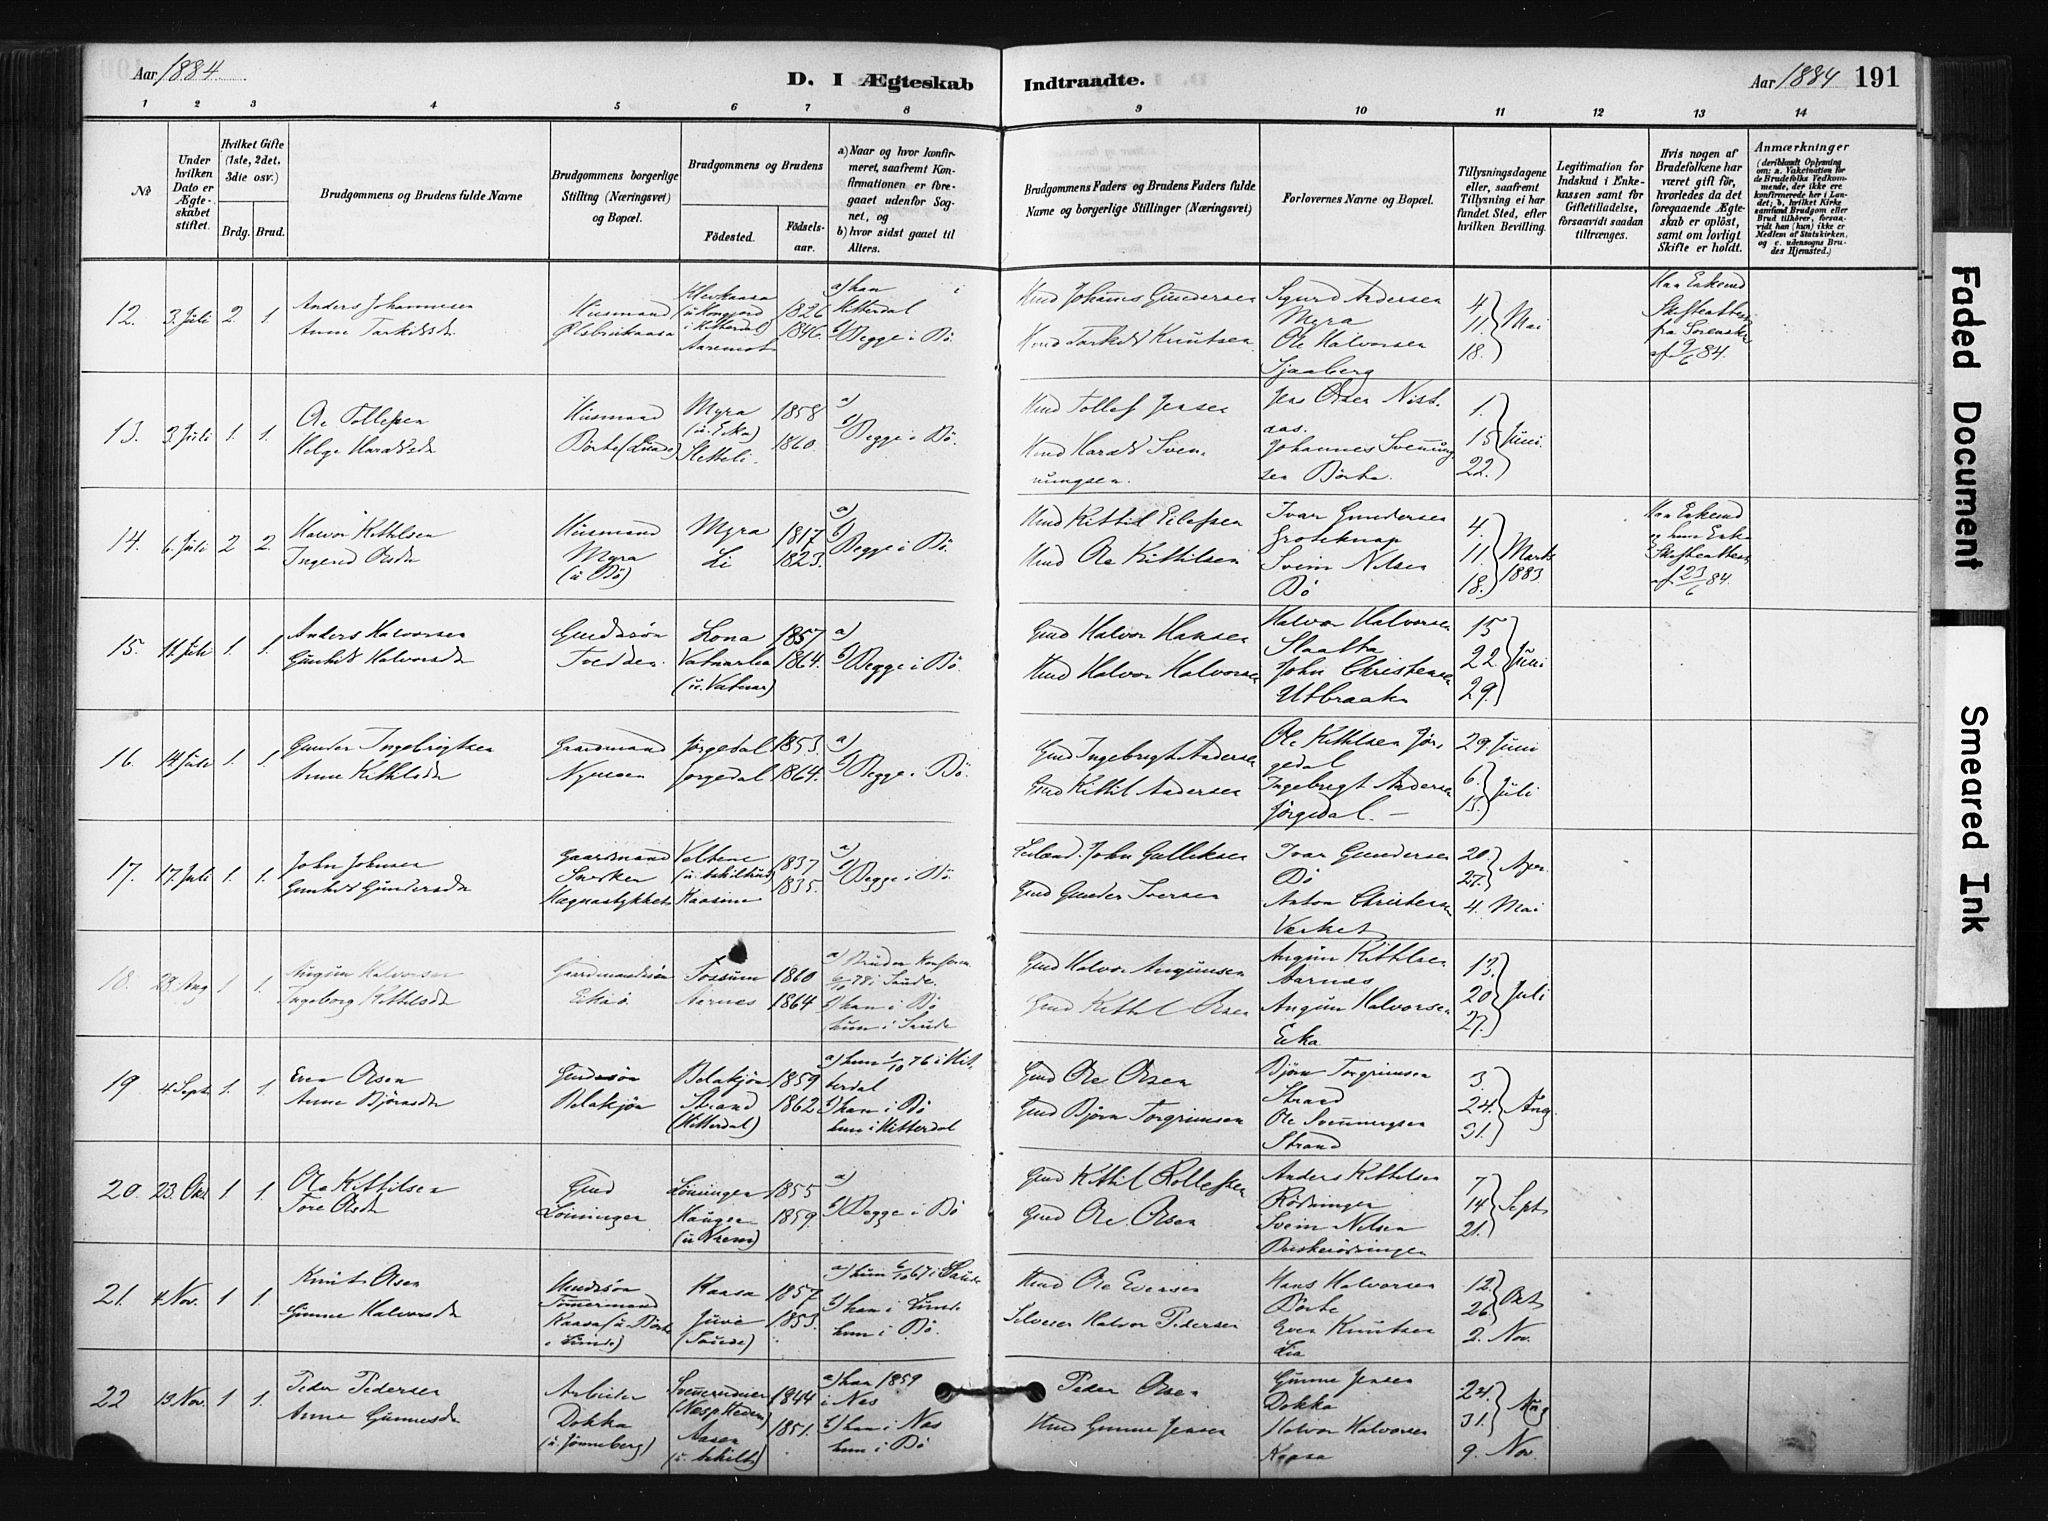 Aar 1884.
D. I Ægteskab
Indtraadte.
Aar 1884
191
1 2 3 4 5 6 7 8 9 10 11 12 13 14
No
Under hvilken Dato er Ægteskabet stiftet.
Hvilket Gifte (1ste, 2det, 3die osv.)
Brdg. Brud.
Brudgommens og Brudens fulde Navne
Brudgommens borgerlige Stilling (Næringsvei) og Bopæl.
Brudgommens og Brudens
Fødested.
Fødselsaar.
a) Naar og hvor konfirmeret, saafremt Konfirmationen er foregaaet udenfor Sognet, og
b) hvor sidst gaaet til Alters.
Brudgommens Faders og Brudens Faders fulde Navne og borgerlige Stillinger (Næringsvei)
Forlovernes Navne og Bopæl.
Tillysningsdagene eller, saafremt Tillysning ei har fundet Sted, efter hvilken Bevilling.
Legitimation for Indskud i Enkekassen samt for Giftetilladelse, forsaavidt saadan tiltrænges.
Hvis nogen af Brudefolkene har været gift før, hvorledes da det foregaaende Ægteskab er opløst, samt om lovligt Skifte er holdt.
Anmærkninger
(deriblandt Oplysning om: a. Vakcination for de Brudefolks Vedkommende, der ikke ere konfirmerede her i Landet; b. hvilket Kirkesamfund Brudgom eller Brud tilhører, forsaavidt han (hun) ikke er Medlem af Statskirken, og c. udensogns Brudes Hjemsted.)
12. 3. Juli 2. 1.
Anders Johannesen
Anne Tarkildsdr
Husmand
Ølsbrukaasa
Klevkaasa
i Hitterdal)
Aaremot
1826
1846.
a) han i
Hitterdal
b) Begge i Bø
Hmd Johannes Gundersen
Hmd Tarkild Knutsen
Sigurd Andersen
Myra
Ole Halvorsen
Sjaaberg
4
11.
18.
Mai
Han Enkemd
Skifteattest
fra Sorenskr
af 9/6 84.
13. 3. Juli 1. 1.
Ole Tollefsen
Helge Haraldsdr
Husmand
Børte (Lunde)
Myra
(u. Eika)
Sletteli.
1858
1860.
a)
b) Begge i Bø.
Hmd Tollef Jensen
Hmd Harald Sven-
nungsen.
Jens Olsen Nist-
aas.
Johannes Svennung
sen Børte.
1.
15
22.
Juni.
14. 6. Juli 2 2.
Halvor Kittilsen
Ingerid Olsdr
Husmand
Myra
(u Bø)
Myra
Li
1817
1823.
a)
b) Begge i Bø.
Hmd Kittil Eilefsen
Hmd Ole Kittilsen
Ivar Gundersen
Groteknap
Svein Nilsen
Bø
4.
11.
18.
Marts
1883
Han Enkemd
og hun Enke
Skifteattest
af 23/6 84.
15. 11. Juli 1. 1.
Anders Halvorsen
Gunhild Halvorsdr
Gmdssøn
Tvedden
Lona
Vatnarlia
(u. Vatnar)
1857
1864.
a)
b) Begge i Bø.
Gmd Halvor Hansen
Hmd Halvor Halvorsen
Halvor Halvorsen
Slaatta
John Christensen
Utbraaten
15
22.
29.
Juni
16. 14 Juli 1. 1.
Gunder Ingebrigtsen
Anne Kittilsdr
Gaardmand
Nymoen
Jørgedal
Jørgedal
1853.
1864.
a)
b) Begge i Bø.
Gmd Ingebrigt Andersen
Gmd Kittil Andersen
Ole Kittilsen Jør-
gedal
Ingebrigt Andersen
Jørgedal. —
29. Juni
6.
13.
Juli
17. 17. Juli 1. 1.
John Johnsen
Gunhild Gundersdr
Gaardmand
Snekker
Haugastykket
Veltene
Kaasene
1837
1835.
a)
b) Begge i Bø.
Leilænd. John Gulliksen
Gmd Gunder Iversen
Ivar Gundersen
Bø
Anton Christensen
Verket
20.
27.
Apr.
4. Mai
18. 28. Aug 1 1.
Angun Halvorsen
Ingeborg Kittilsdr
Gaardmandssøn
Eika
Fossum
Aarnes
1860
1864
a) Bruden Konfirm.
6/10 78 i Saude.
b) han i Bø
hun i Saude
Gmd Halvor Angunsen
Gmd Kittil Olsen
Angun Kittilsen
Aarnes
Angun Halvorsen
Eika
13.
20.
27.
Juli
19 4 Sept 1. 1.
Even Olsen
Anne Bjørnsdr
Gmdssøn
Belaksjøn
Belaksjøn
Strand
(Hitterdal)
1859
1862
a) hun 1/10 76 i Hit-
terdal
b) han i Bø
hun i Hitterdal
Gmd Ole Olsen
Gmd Bjørn Torgrimsen
Bjørn Torgrimsen
Strand
Ole Svennungsen
Strand
3.
24.
31.
Aug
20. 23. Okt 1 1.
Ole Kittilsen
Tore Olsdr
Gmd
Lønninger
Lønningen
Haugen
1855
1859.
a)
b) Begge i Bø
Gmd Kittil Rollefsen
Gmd Ole Olsen
Anders Kittilsen
Rødningen
Svein Nilsen
7
14
21.
Sept
21. 4. Nov. 1 1.
Knut Olsen
Gunne Halvorsdr
Hmdssøn
Tømmermand
Kaasa (u Børte
i Lunde)
Kaasa
Juve
(Saude)
1857.
1853.
a) hun 6/10 67 i Saude
b) han i Lunde
hun i Bø.
Hmd Ole Evensen
Selveier Halvor Pedersen
Hans Halvorsen
Børte
Even Knutsen
Lia
12.
26.
Okt
2. Nov.
22 13 Nov. 1 1.
Peder Pedersen
Anne Gunnesdr
Arbeider
Dokka
(u. Jønneberg)
Aasen
1844
1851.
a) han 1859
i Nes
b) han i Nes
hun i Bø
Peder Olsen
Hmd Gunne Jensen
Gunne Jensen
Dokka
Halvor Halvorsen
Kaasa
24.
31.
Aug
9. Nov.
Faded Document
Smeared Ink